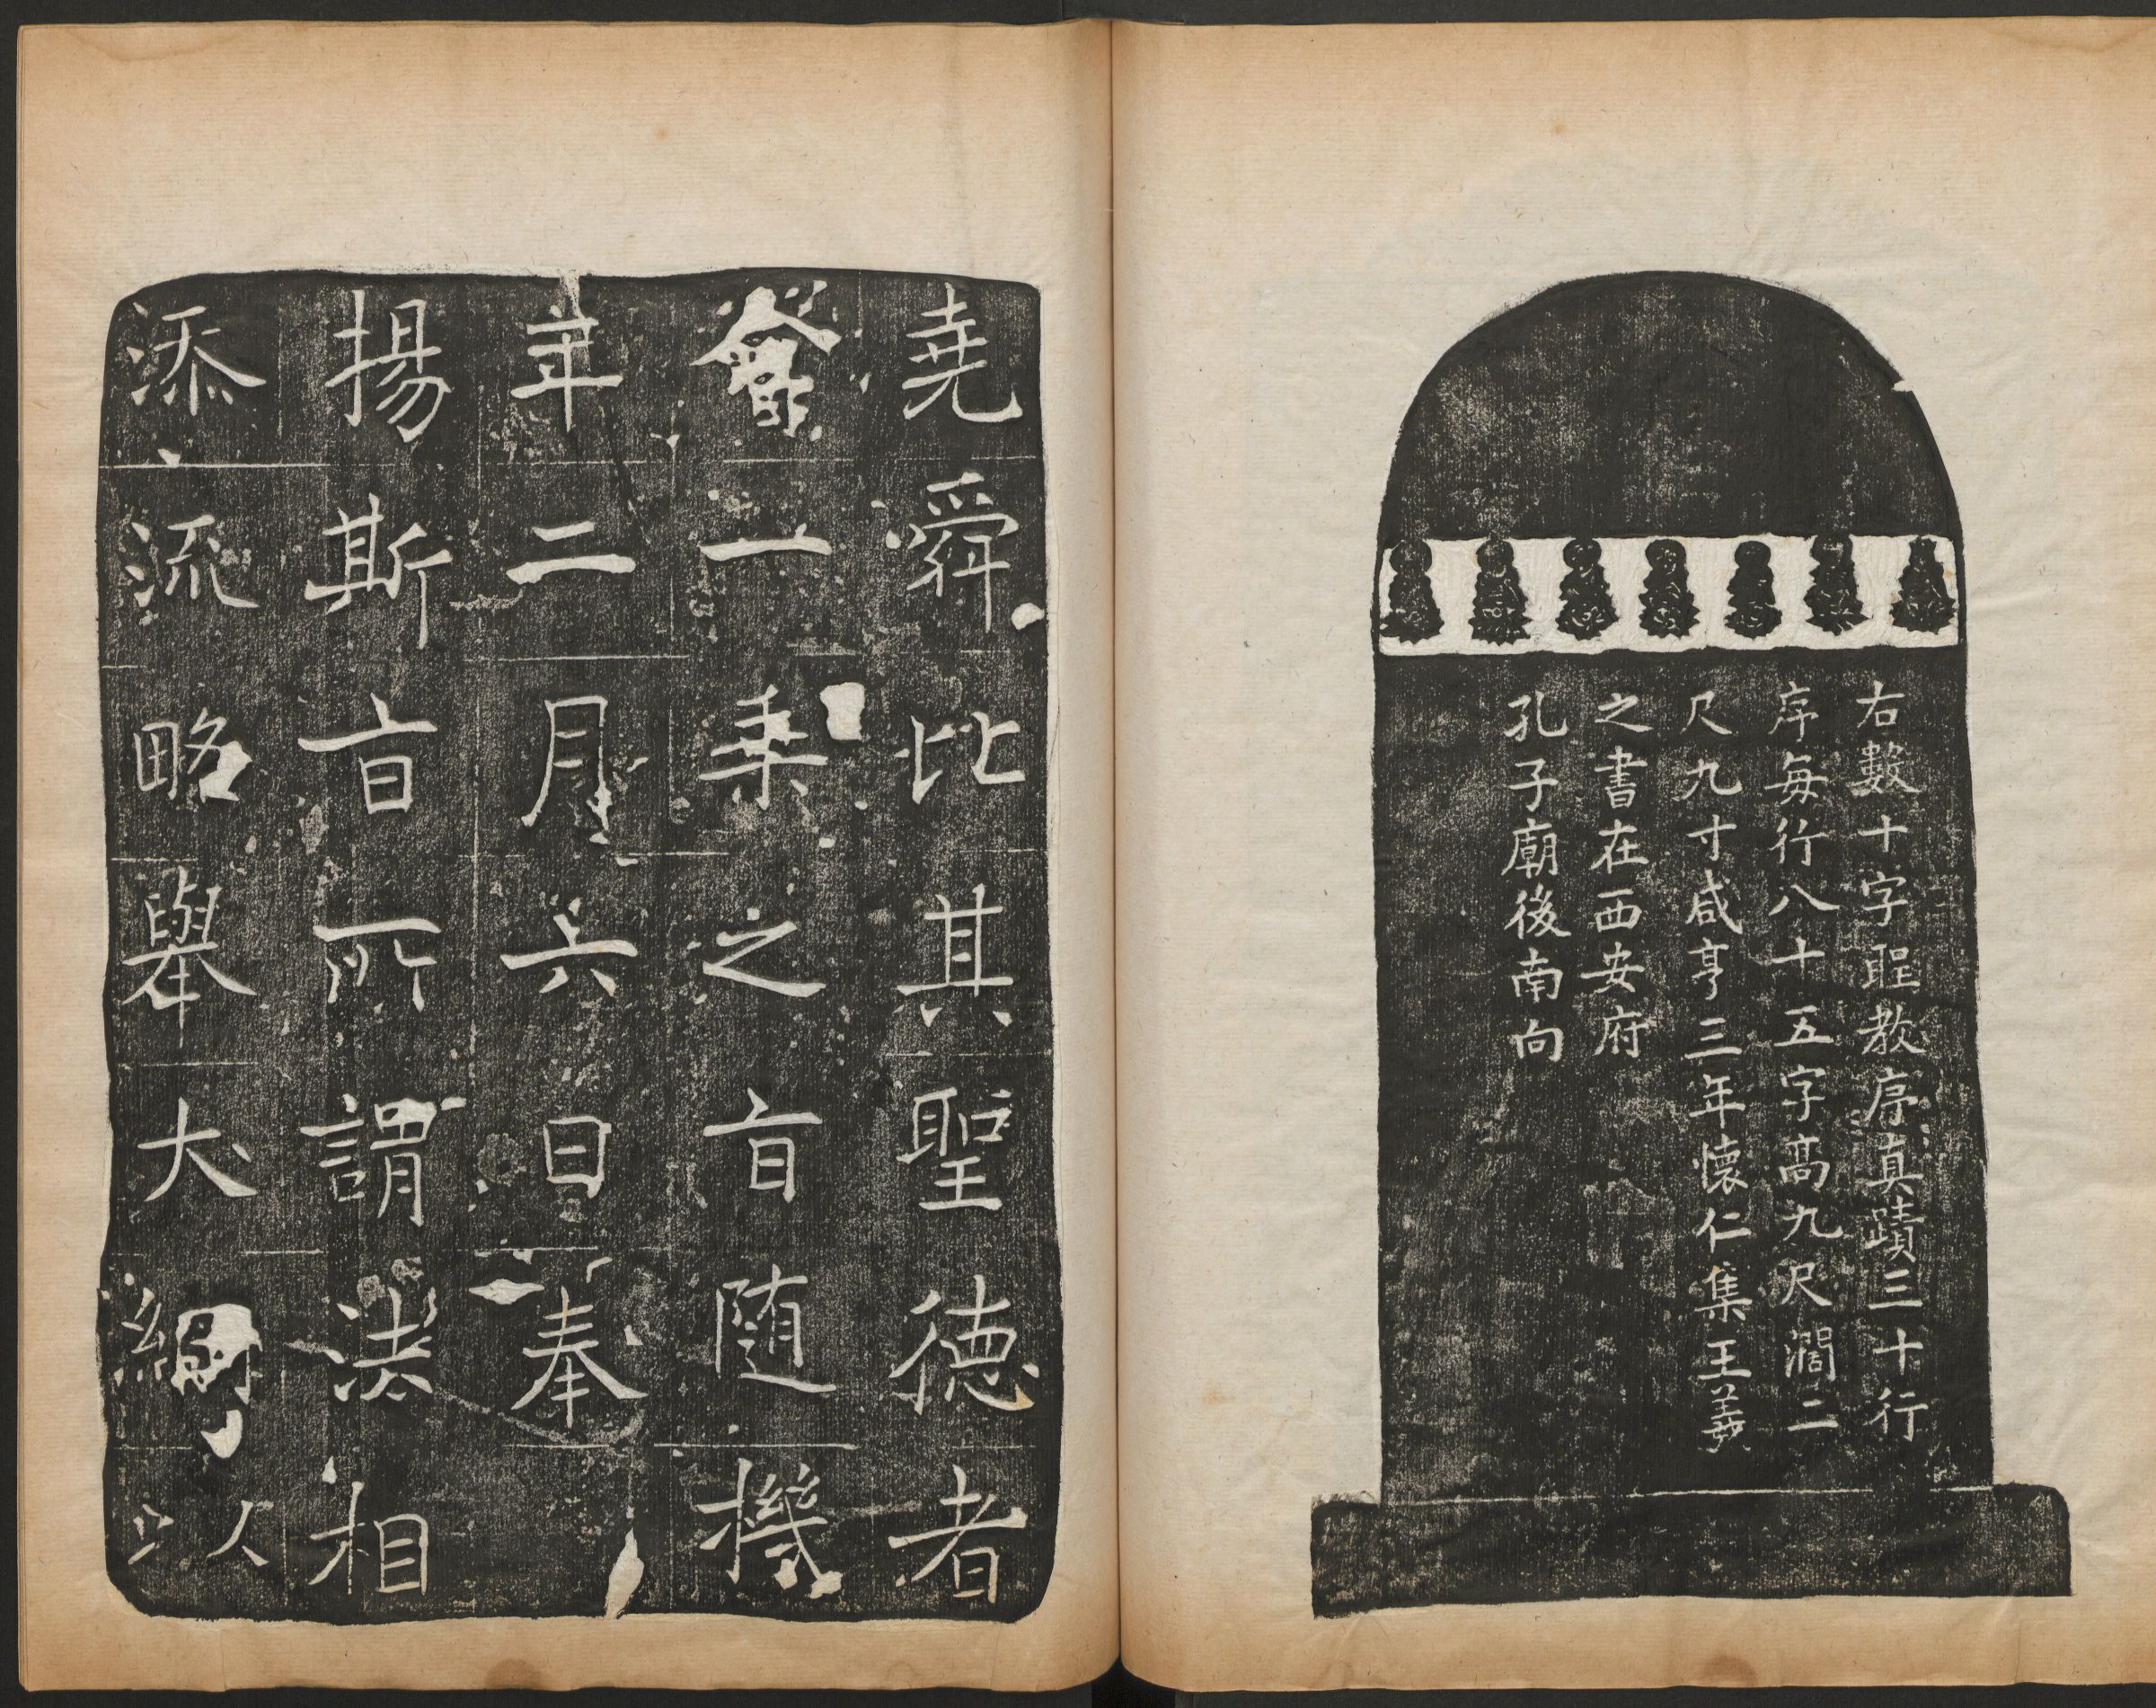 右數十字聖教序真蹟三十行
序每行八十五字高九尺濶二
尺九寸咸亨三年懷仁集王羲
之書在西安府
孔子廟後南向
堯舜比其聖德者
會一乗之旨随機
年二月六日奉
揚斯旨所謂法相
添流略舉大綱以